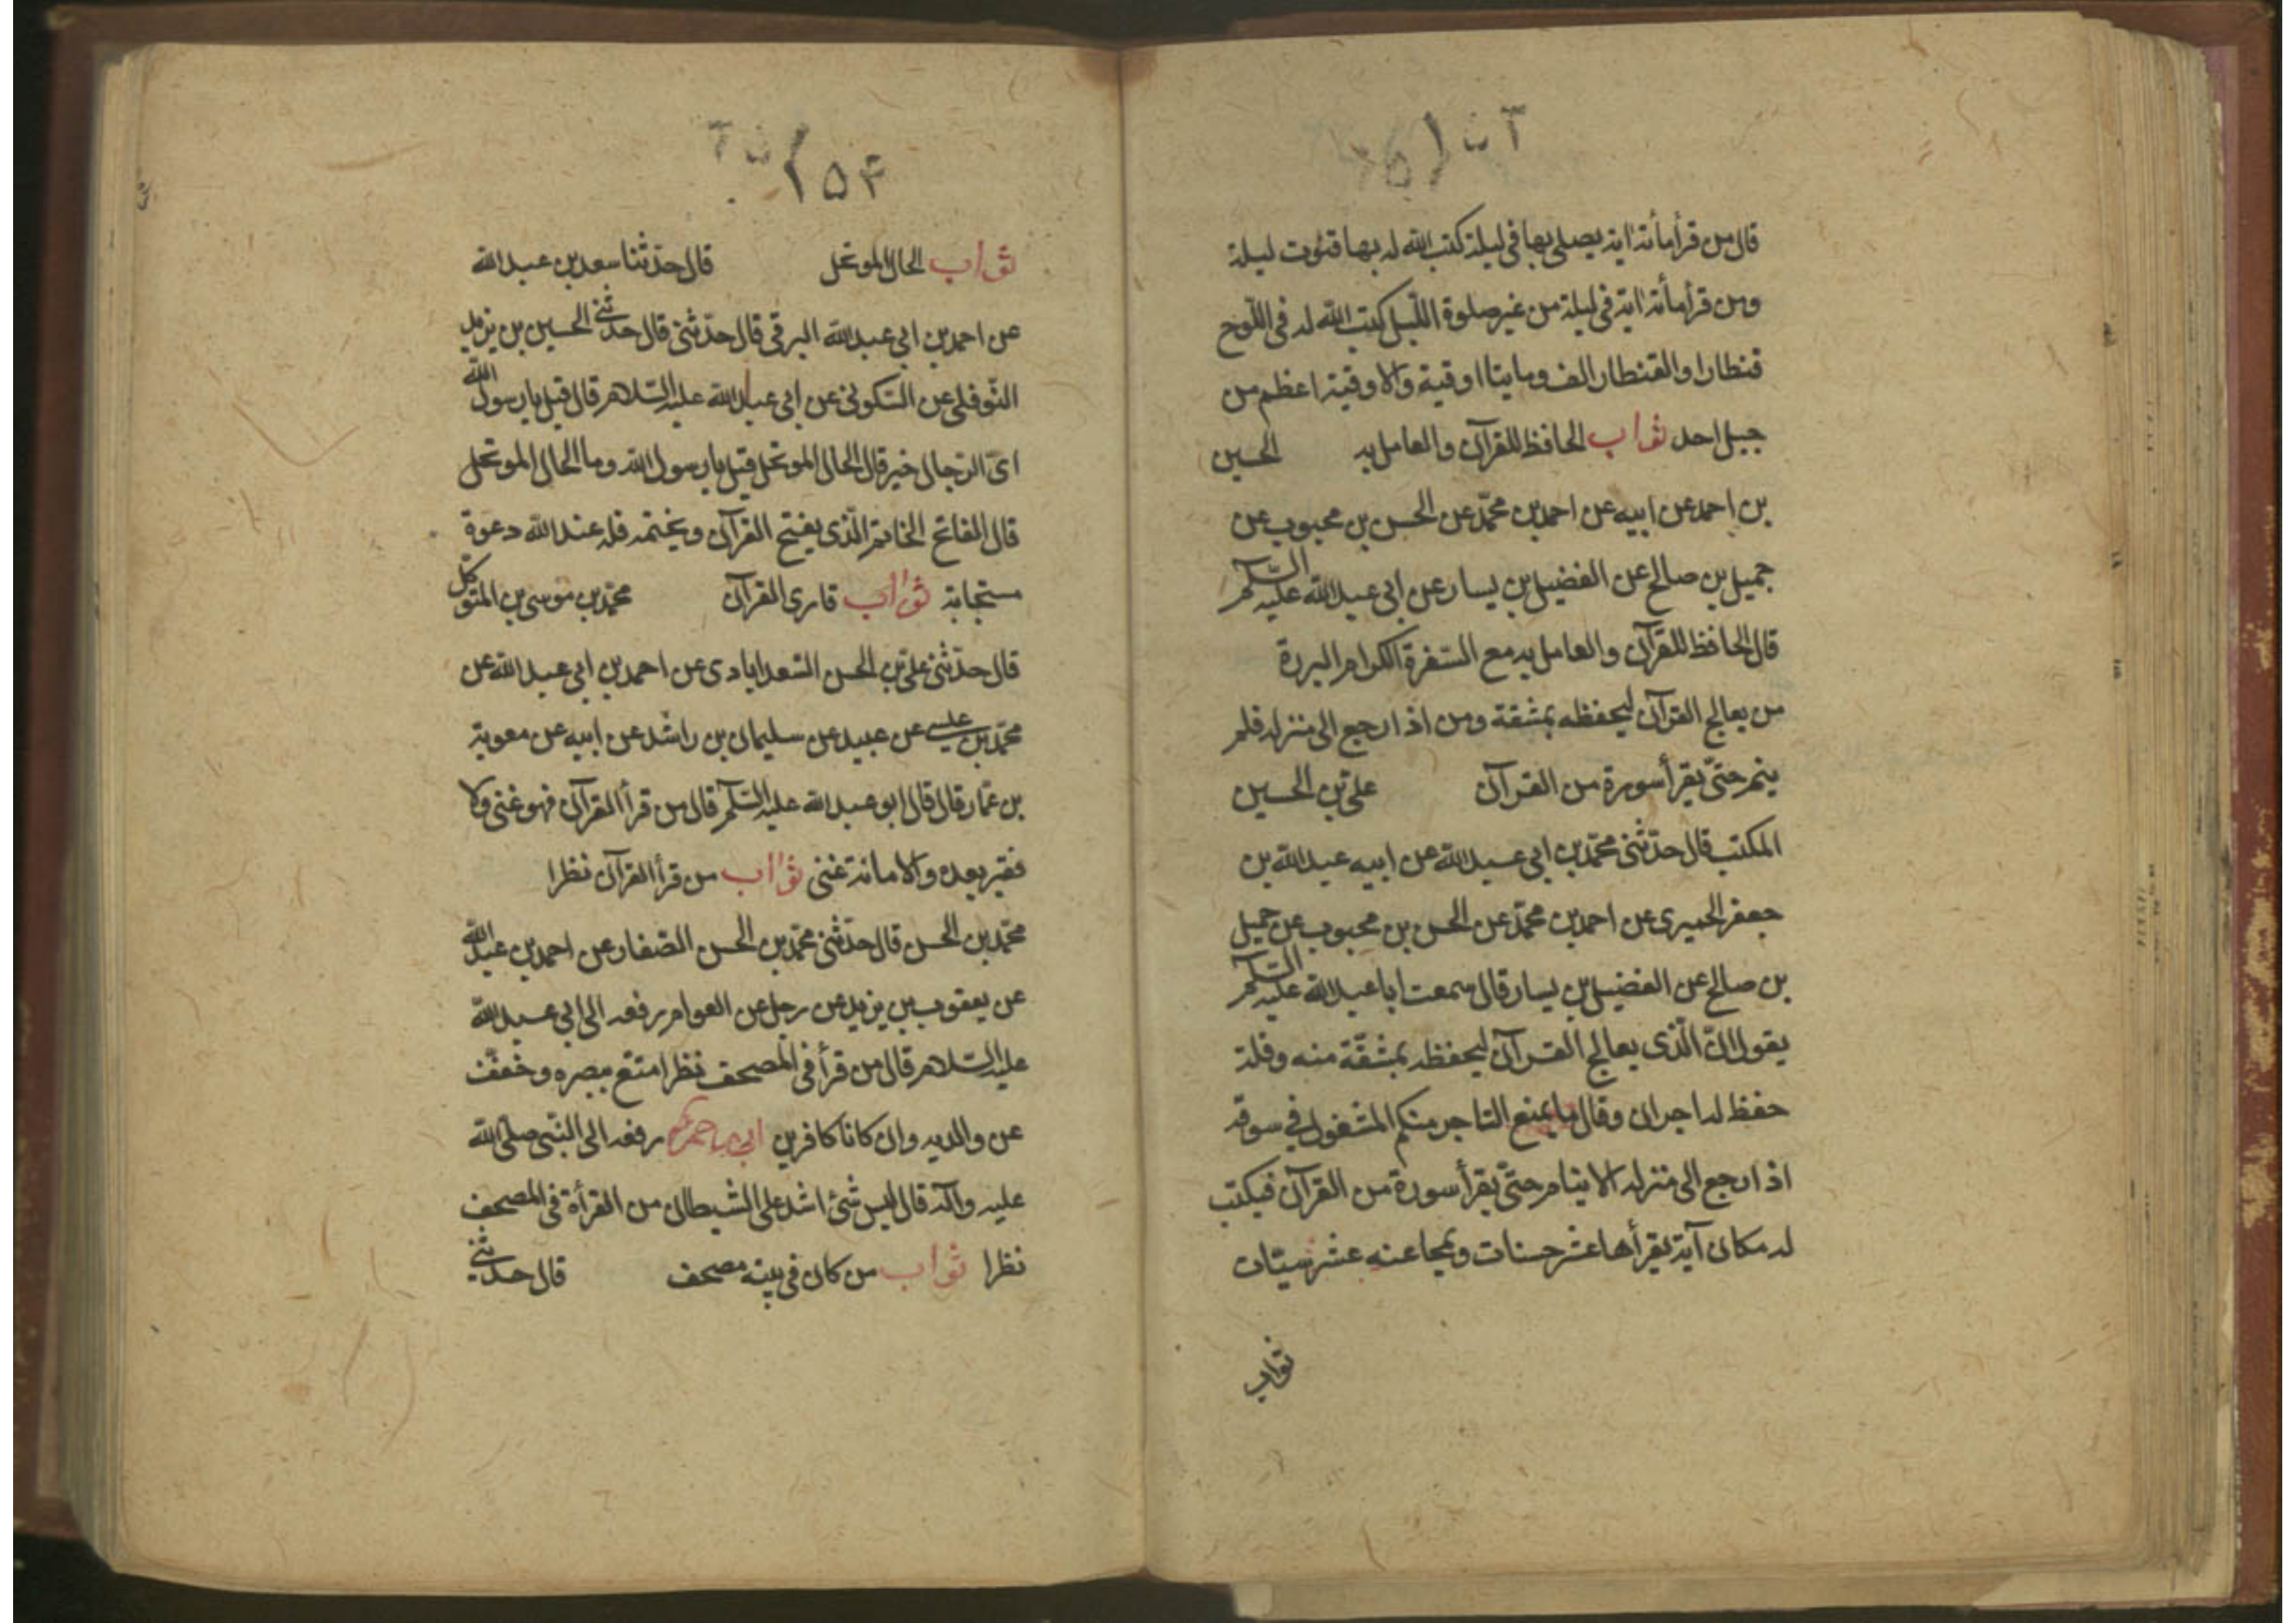 قال من قرأ مأئة اية يصلى بها فى ليلة كتب الله له بها قنوت ليلة
ومن قرأ مأئة اية فى ليلة من غير صلوة الليل كتب الله له فى اللوح
قنطارا والقنطار الف ومايتا اوقية والاوقية اعظم من
جبل احد ثواب الحافظ للقرآن والعامل به الحسين
بن احمد عن ابيه عن احمد بن محمّد عن الحسن بن محبوب عن
جميل بن صالح عن الفضيل بن يسار عن ابى عبد الله عليه السّلم
قال الحافظ للقرآن والعامل به مع السفرة الكرام البررة
من يعالج القرآن ليحفظه بمشقة ومن اذا رجع الى منزله فلم
ينم حتّى يقرأ سورة من القرآن علىّ بن الحسين
المكتب قال حدّثنى محمّد بن ابى عبد الله عن ابيه عبد الله بن
جعفر الحميرى عن احمد بن محمّد عن الحسن بن محبوب عن جميل
بن صالح عن الفضيل بن يسار قال سمعت ابا عبد الله عليه السّلم
يقول انّ الّذى يعالج القرآن ليحفظه بمشقّة منه وقلة
حفظ له اجران وقال ما يمنع التاجر منكم المشغول فى سوقه
اذا رجع الى منزله الا ينام حتّى يقرأ سورة من القرآن فيكتب
له مكان آية يقرأها عشر حسنات ويمحا عنه عشر سيّات
ثواب
٢٥٤
ثواب الحال الموتحل قال حدّثنا سعد بن عبد الله
عن احمد بن ابى عبد الله البرقى قال حدّثنى قال حدثنى الحسين بن يزيد
النّوفلى عن السّكونى عن ابى عبد الله عليه السّلام قال قيل يا رسول الله
اىّ الرّجال خير قال الحال الموتحل قيل يا رسول الله وما الحال الموتحل
قال الفاتح الخاتم الّذى يفتح القرآن ويختمه فله عند الله دعوة
مستجابة ثواب قارى القرآن محمّد بن موسى بن المتوكّل
قال حدّثنى علىّ بن الحسن السّعدابادى عن احمد بن ابى عبد الله عن
محمّد بن عيسى عن عبيد عن سليمان بن راشد عن ابيه عن معوية
بن عمّار قال قال ابو عبد الله عليه السّلم قال من قرأ القرآن فهو غنى ولا
فقير بعده والا ما نة غنى ثواب من قرأ القرآن نظرا
محمّد بن الحسن قال حدّثنى محمّد بن الحسن الصّفار عن احمد بن عبد الله
عن يعقوب بن يزيد عن رجل عن العوام رفعه الى ابى عبد الله
عليه السّلام قال من قرأ فى المصحف نظرا متّع ببصره وخفّف
عن والديه وان كانا كافرين رفعه الى النّبى صلّى الله
عليه وآله قال ليس شئ اشد على الشيطان من القرأة فى المصحف
نظرا ثواب من كان فى بيته مصحف قال حدثنى